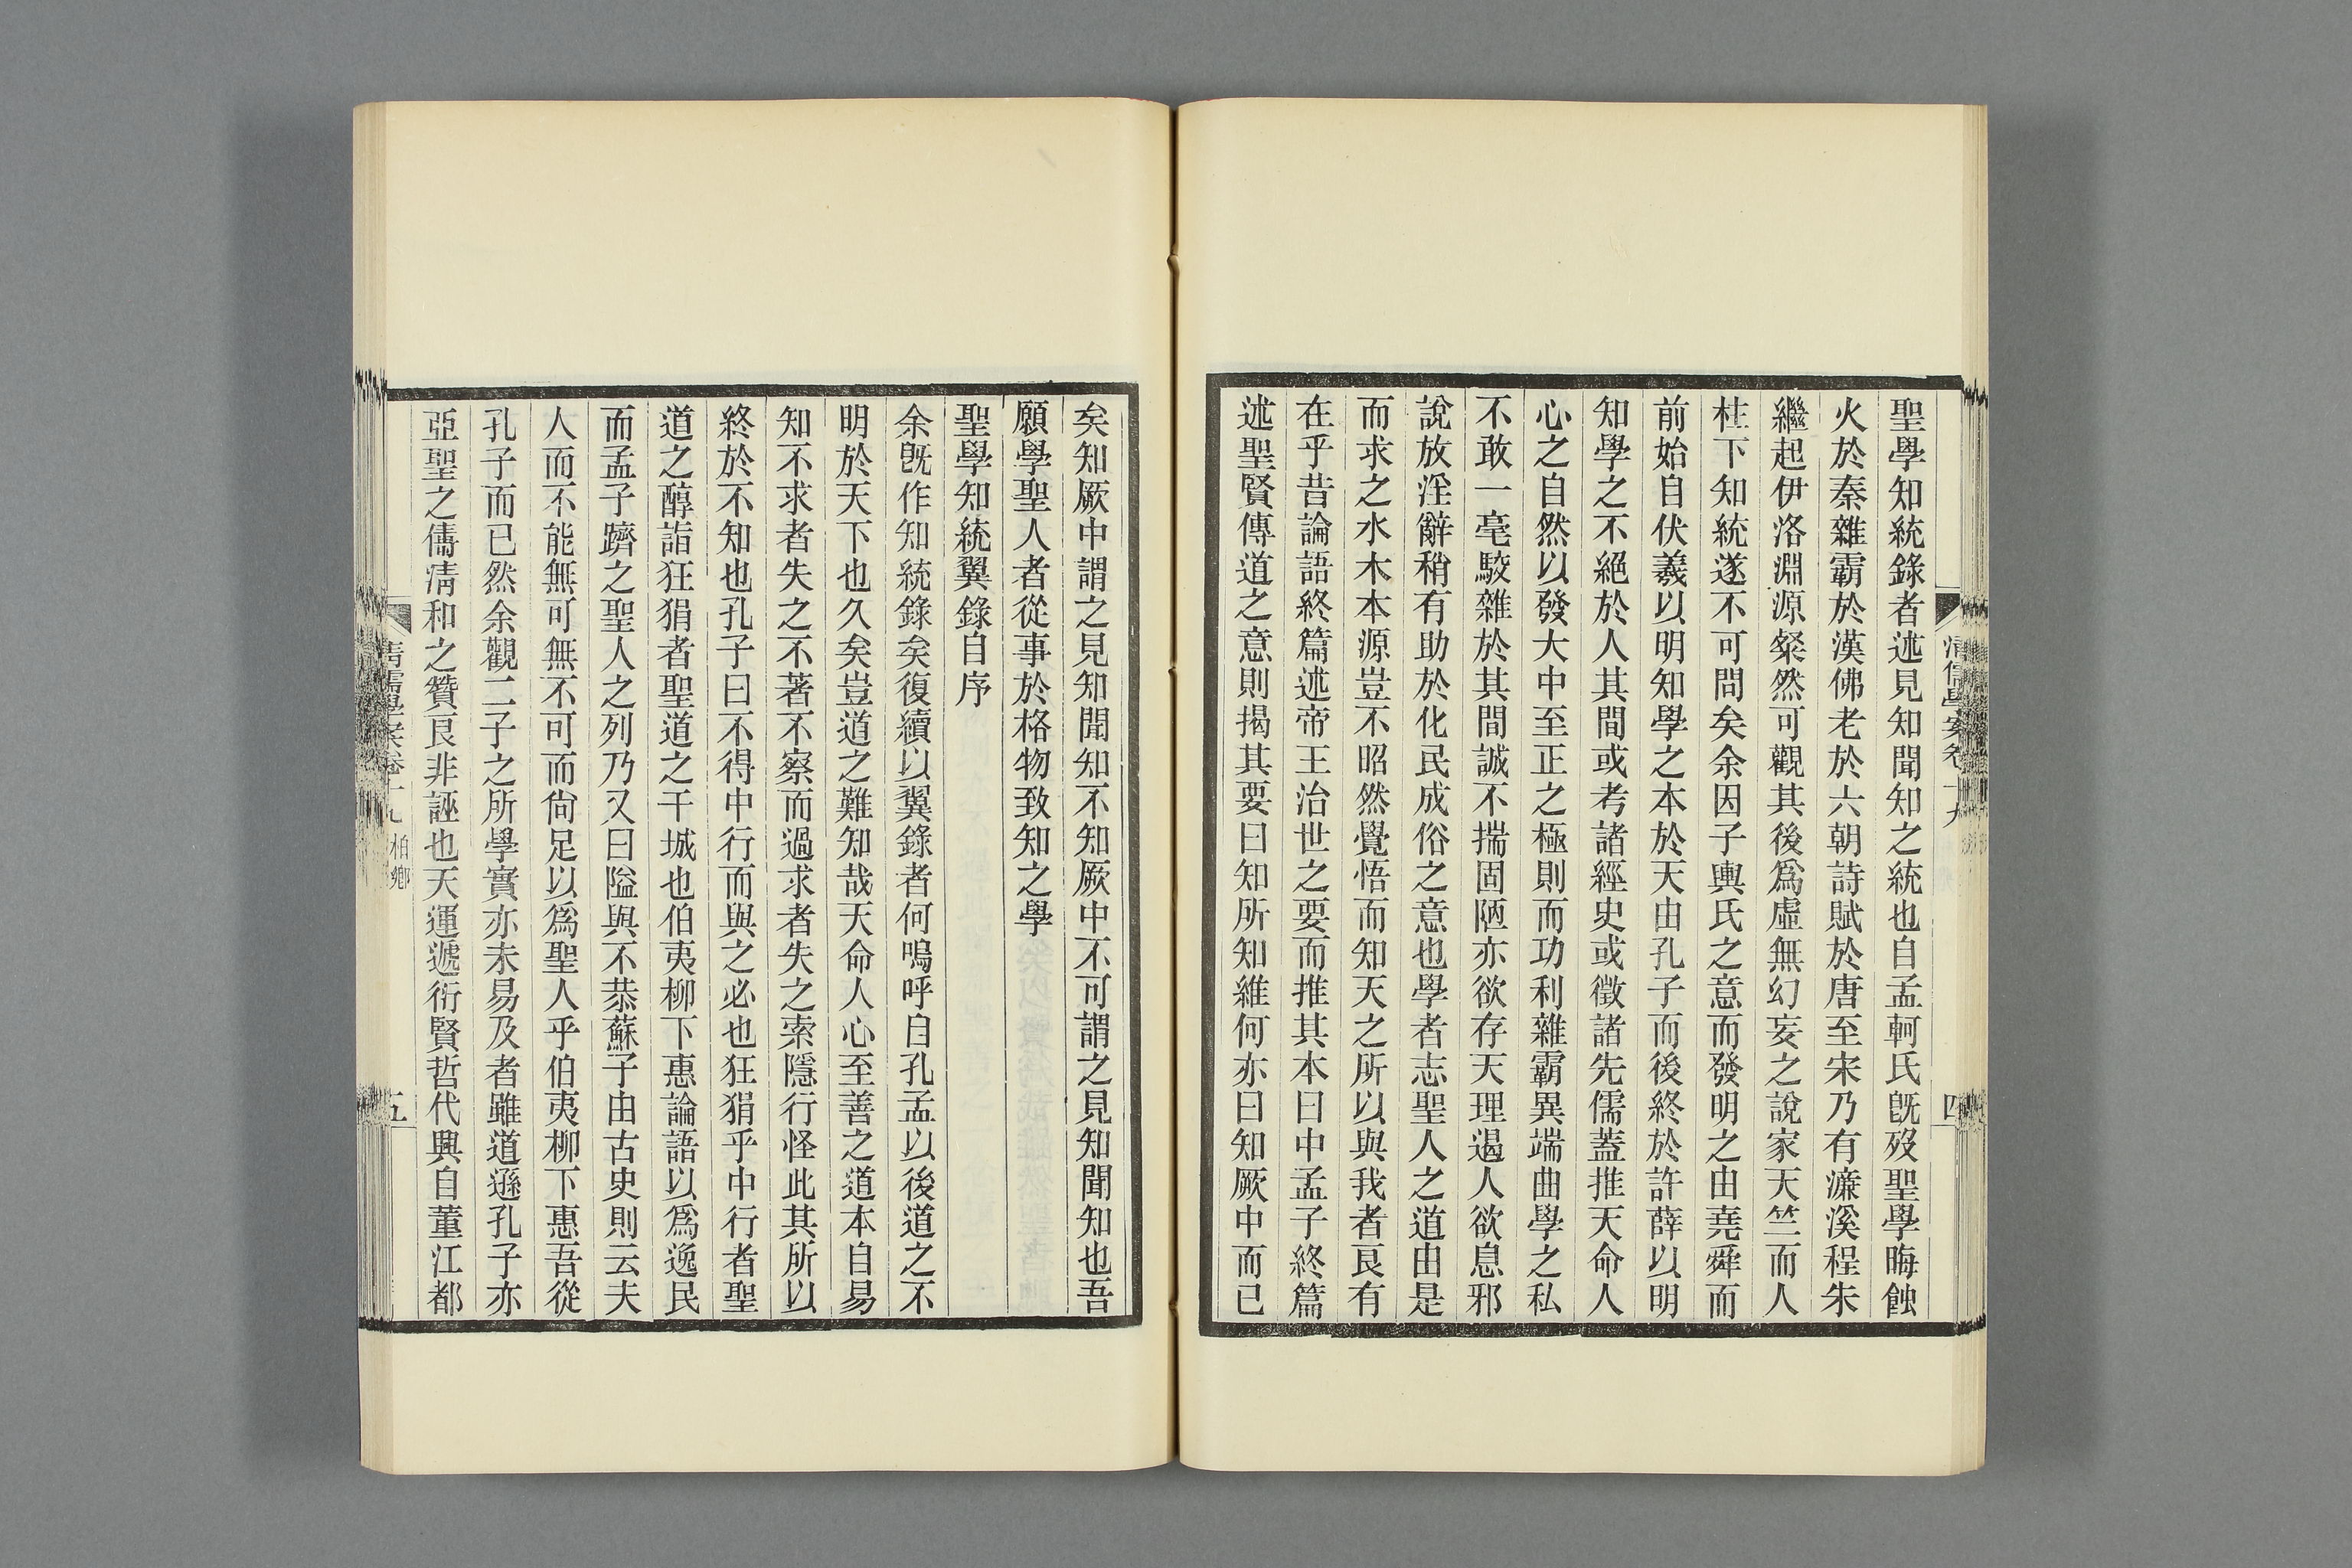 聖學知統錄者述見知聞知之統也自孟軻氏旣歿聖學晦蝕
火於秦雜霸於漢佛老於六朝詩賦於唐至宋乃有濂溪程朱
繼起伊洛淵源粲然可觀其後爲虛無幻妄之說家天竺而人
柱下知統遂不可問矣余因子輿氏之意而發明之由堯舜而
前始自伏羲以明知學之本於天由孔子而後終於許薛以明
知學之不絕於人其間或考諸經史或徵諸先儒蓋推天命人
心之自然以發大中至正之極則而功利雜霸異端曲學之私
不敢一毫駁雜於其間誠不揣固陋亦欲存天理遏人欲息邪
說放淫辭稍有助於化民成俗之意也學者志聖人之道由是
而求之水木本源豈不昭然覺悟而知天之所以與我者良有
在乎昔論語終篇述帝王治世之要而推其本曰中孟子終篇
述聖賢傳道之意則揭其要曰知所知維何亦曰知厥中而已
清儒學案卷十九
四
矣知厥中謂之見知聞知不知厥中不可謂之見知聞知也吾
願學聖人者從事於格物致知之學
聖學知統翼錄自序
余旣作知統錄矣復續以翼錄者何嗚呼自孔孟以後道之不
明於天下也久矣豈道之難知哉天命人心至善之道本自易
知不求者失之不著不察而過求者失之索隱行怪此其所以
終於不知也孔子曰不得中行而與之必也狂狷乎中行者聖
道之醇詣狂狷者聖道之干城也伯夷柳下惠論語以爲逸民
而孟子躋之聖人之列乃又曰隘與不恭蘇子由古史則云夫
人而不能無可無不可而尙足以爲聖人乎伯夷柳下惠吾從
孔子而已然余觀二子之所學實亦未易及者雖道遜孔子亦
亞聖之儔淸和之贊良非誣也天運遞衍賢哲代興自董江都
清儒學案卷十九 柏鄉
五